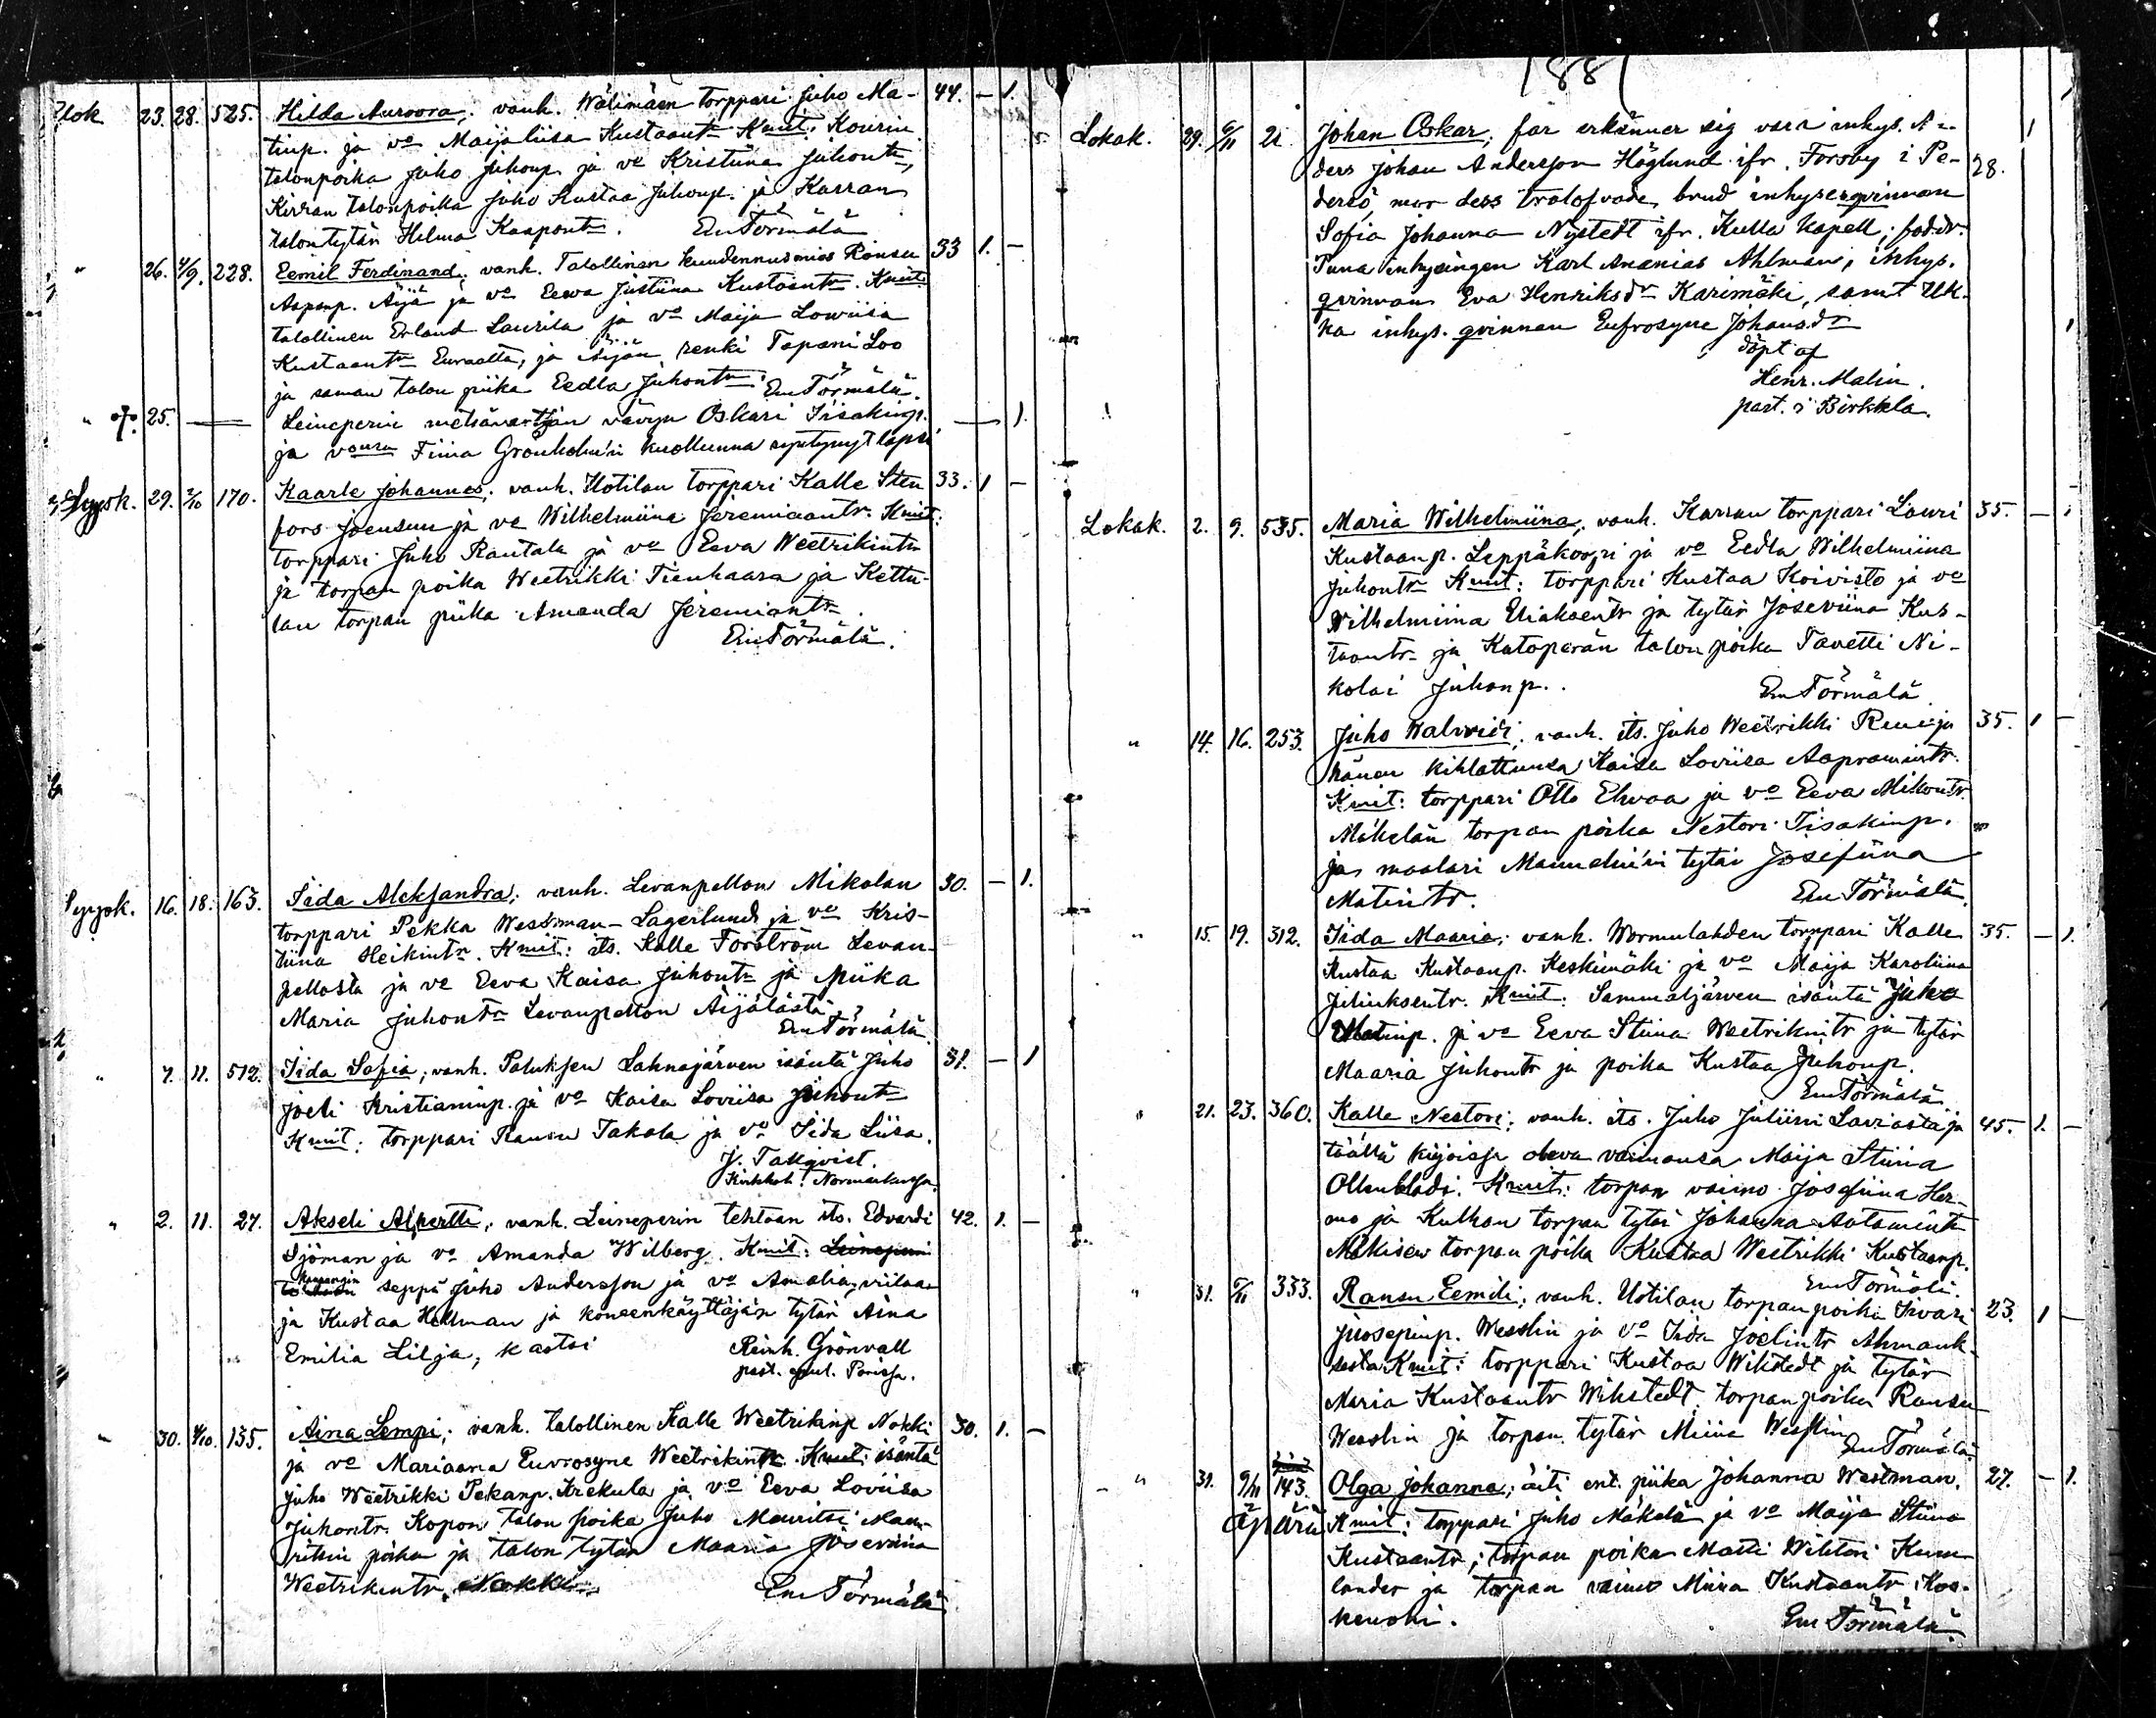 Elok 23. 28. 525. Hilda Auroora; vanh. Wälimäen torppari Juho Ma- 44. – 1.
tinp. ja vo Maijaliisa Kustaantr. Kmit:
talonpoika Juho Juhonp. ja vo Kristiina Juhontr,
talonpoika Juho Kustaa Juhonp. ja Karran
talontytär Helma Kaapontr. Em Törmälä
" 26. 4/9. 228. Eemil Ferdinand; vanh. Talollinen 33 1. –
Aapanp. Äijä ja vo Eewa Justiina Kustaantr. Kmit:
talollinen Erland Laurila ja vo Maija Lowiisa
Kustaantr Euraalta, ja Äijän renki Tapani Loo
ja saman talon piika Eedla Juhontr. Em Törmälä.
" †. 25. — Leineperin metsävartijan vävyn Oskari Iisakinp. — 1.
ja vonsa Fiina Grönholm'in kuolleena syntynyt lapsi
Syysk. 29. 2/10 170. Kaarle Johannes; vanh. Uotilan torppari Kalle Sten 33. 1 –
fors Joensuu ja vo Wilhelmiina Jeremiaantr. Kmit:
torppari Juho Rantala ja vo Eeva Weetrikintr
ja torpan poika Weetrikki Tienhaara ja Kettu-
lan torpan piika Amanda Jeremiantr.
Em Törmälä.
Syysk. 16. 18. 163. Iida Aleksandra; vanh. Levanpellon Mikolan 30. – 1.
torppari Pekka Westman-Lagerlund ja vo Kris-
tiina Heikintr. Kmit: its. Kalle Forström Levan-
pellosta ja vo Eeva Kaisa Juhontr ja piika
Maria Juhontr Levanpellon Äijälästä
Em Törmälä
" 7. 11. 512. Iida Sofia; vanh. Paluksen Lahnajärven isäntä Juho 31. – 1
Joeli Kristianinp. ja vo Kaisa Loviisa Juhontr
Kmit: torppari Ransu Takala ja vo Iida Liisa.
J. Takqvist.
Kirkkoh. Normarkussa.
" 2. 11. 27. Akseli Alpertti; vanh. Leineperin tehtaan its. Edvardi 42. 1. –
Sjöman ja vo Amanda Wilberg. Kmit: Leineperin
seppä Juho Andersson ja vo Amalia,
ja Kustaa Hellman ja koneenkäyttäjän tytär Aina
Emilia Lilja, kastoi Reinh. Grönvall
past. Porissa.
" 30. 4/10. 135. Aina Lempi; vanh. talollinen Kalle Weetrikinp Nokki 30. 1. –
ja vo Mariaana Euvrosyne Weetrikintr. Kmit: isäntä
Juho Weetrikki Pekanp. Krekula ja vo Eeva Loviisa
Juhontr. Kopon talon poika Juho Mauritsi Mau-
ritsin poika ja talon tytär Maaria Joseviina
Weetrikintr. Nokki. Em Törmälä
1881
Lokak. 29. 6/11 21. Johan Oskar; far erkänner sig vara inhys. An- 1
ders Johan Andersson Höglund ifr. Forsby i Pe- 28.
dersö mor dess trolofvade brud inhysesqvinnan
Sofia Johanna Nystedt ifr. Kulla Kapell; faddr.
inhysingen Karl Ananias Ahlman, inhys.
qvinnan Eva Henriksdr Karimäki, samt Uk-
ka inhys. qvinnan Eufrosyne Johansdr
döpt af
Henr. Malin.
past. i Birkkla.
Lokak. 2. 9. 535. Maria Wilhelmiina; vanh. Karran torppari Lauri 35. – 1
Kustaanp. Leppäkorpi ja vo Eedla Wilhelmiina
Juhontr Kmit: torppari Kustaa Koivisto ja vo
Wilhelmiina Eliaksentr ja tytär Joseviina Kus-
taantr. ja Katoperän talon poika Tavetti Ni-
kolai Juhonp. Em Törmälä
" 14. 16. 253. Juho Walvridi; vanh. its. Juho Weetrikki ja 35. 1 –
hänen kihlattunsa Kaisa Loviisa Aapramintr.
Kmit: torppari Otto Elwaa ja vo Eeva Mikontr.
Mäkelän torpan poika Nestori Iisakinp.
ja maalari tytär Josefiina
Matintr. Em Törmälä.
" 15. 19. 312. Iida Maaria; vanh. Wormulahden torppari Kalle 35. – 1.
Kustaa Kustaanp. Keskimäki ja vo Maija Karoliina
Juliuksentr. Kmit: Sammaljärven isäntä Juho
Matinp. ja vo Eeva Stiina Weetrikintr ja tytär
Maaria Juhontr ja poika Kustaa Juhonp.
Em Törmälä
" 21. 23. 360. Kalle Nestori; vanh. its. Juho Juliini Laviasta ja 45. 1. –
täällä kirjoissa oleva vaimonsa Maija Stiina
Ollenbladi. Kmit: torpan vaimo Josefiina Her-
mo ja Kulhan torpan tytär Johanna Aatamintr
Mäkisen torpan poika Kustaa Weetrikki Kustaanp.
Em Törmälä.
" 31. 6/11 333. Ransu Eemili; vanh. Uotilan torpan poika Iivari 23. 1 –
Juosepinp. Wesslin ja vo Iida Joelintr Ahmauk-
sesta Kmit: torppari Kustaa Wikstedt ja tytär
Maria Kustaantr Wikstedt, torpan poika Ransu
Wesslin ja torpan tytär Miina Wesslin
Em Törmälä
" 31. 9/11 143. Olga Johanna; äiti ent. piika Johanna Westman. 27. – 1.
äpärä Kmit: torppari Juho Mäkelä ja vo Maija Stiina
Kustaantr; torpan poika Matti Wihtori Kum-
lander ja torpan vaimo Miina Kustaantr Kos-
kenohi. Em Törmälä.